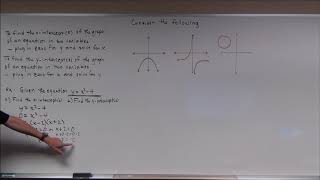 To find the x-intercept(s) of the graph
of an equation in two variables
- plug in zero for y and solve for x
To find the y-intercept(s) of the graph
of an equation in two variables
- plug in zero for x and solve for y
Ex: Given the equation y = x² - 4
a) Find the x-intercept(s) b) Find the y-intercept(s)
y = x² - 4
0 = x² - 4
(x-2)(x+2)
x+2=0
Consider the following